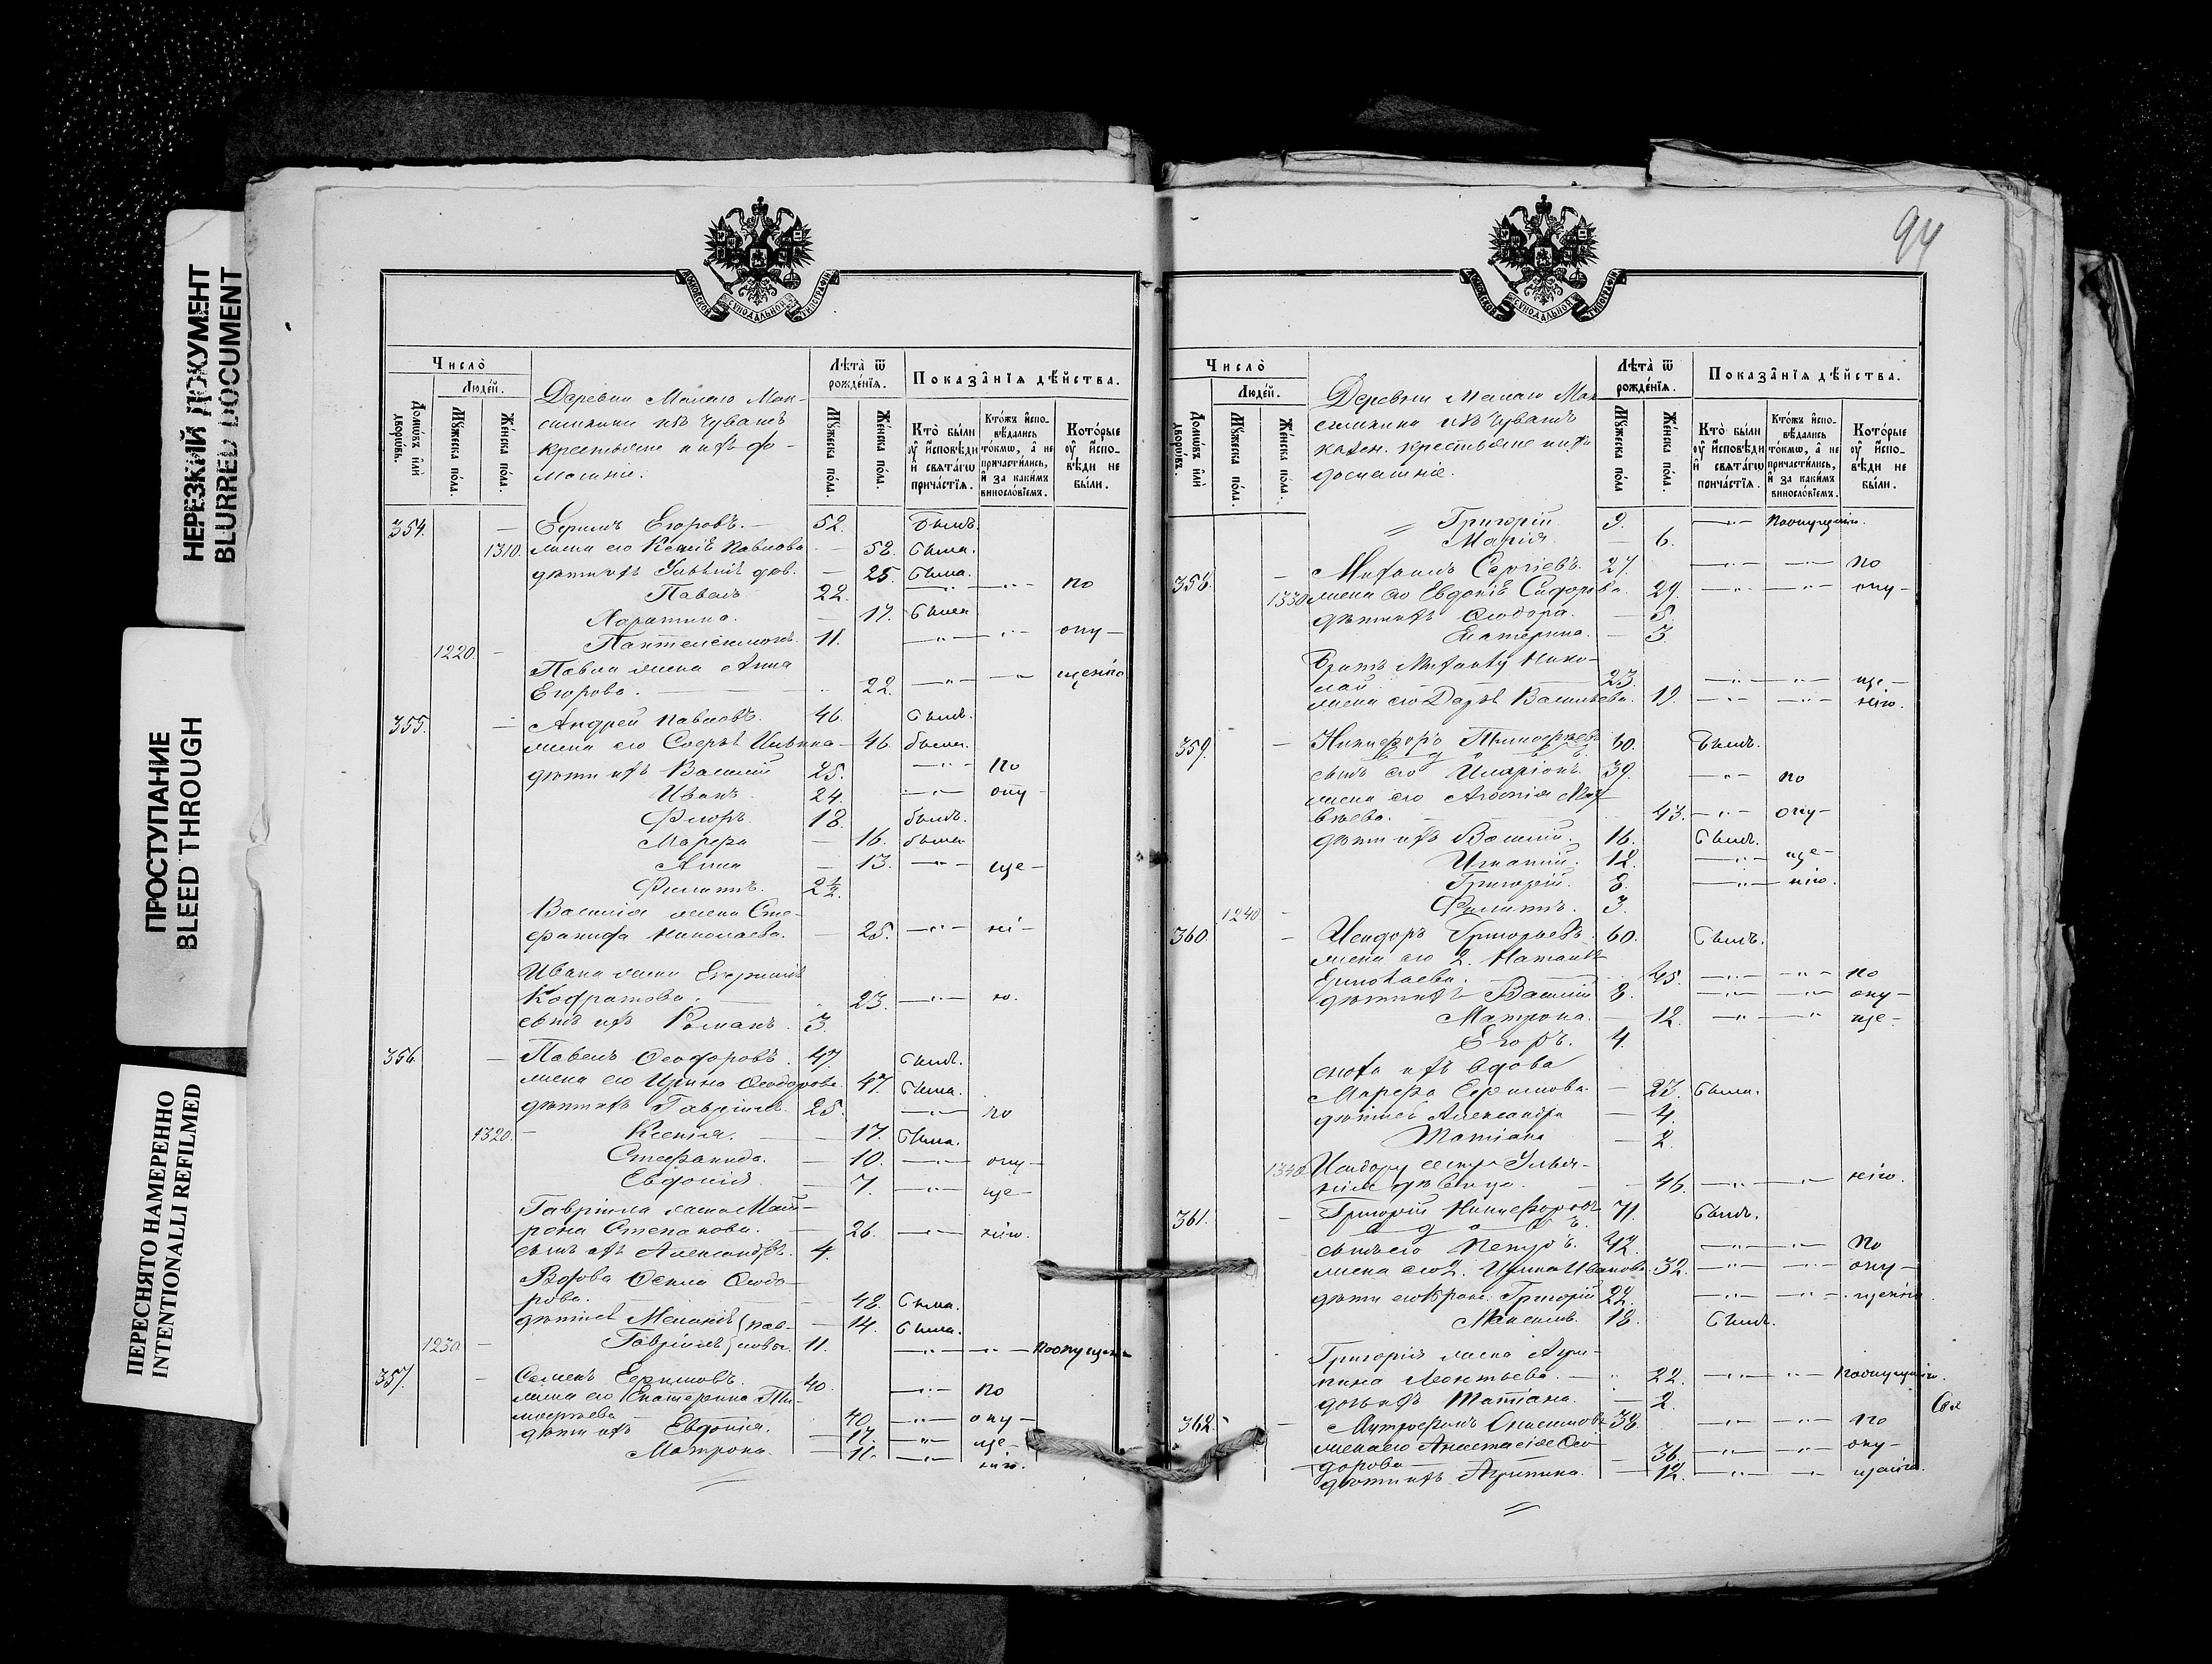 НЕРЕЗКИЙ ДОКУМЕНТ
BLURRED DOCUMENT
ПРОСТУПАНИЕ
BLEED THROUGH
ПЕРЕСНЯТО НАМЕРЕННО
INTENTIONALLI REFILMED
МОСКОВСКОЙ СУНОДАЛЬНОЙ ТИПОГРАФІИ
Число̀
Людéй.
Домѡ́въ и҆лѝ дворѡ́въ.
Мꙋ́жеска по́ла.
Же́нска по́ла.
Деревни Малаго Мак-
сикини изъ Чувашъ
крестьяне и ихъ до-
машніе.
Лѣта̀ ѿ рожде́нїѧ.
Мꙋ́жеска по́ла.
Же́нска по́ла.
Показа̂нїѧ дѣ́йства.
Кто̀ бы́ли ᲂу҆ и҆́сповѣди и҆ свѧта́гѡ прича́стїѧ.
Кто́жъ и҆сповѣ́дались то́кмѡ, а҆ не причасти́лись, и҆ за каки́мъ винословїемъ.
Кото́рые ᲂу҆ и҆́сповѣди не бы́ли.
354. — Ефимъ Егоровъ. — 52. Былъ.
1310. жена его Ксенія Павлова — 52. была.
дѣти ихъ Ульянія дѣв. — 25. была.
Павелъ 22. —"— —"— по
Харитина. — 17. была
1220. — Пантелеимонъ. 11. —"— —"— опу—
Павла жена Анна
Егорова. — 22. —"— —"— щенію
355. — Андрей Павловъ. 46. былъ.
жена его Софья Ильина — 46. была.
дѣти ихъ Василій 25. —"— по
Иванъ. 24. —"— опу—
Флоръ. 18. былъ.
Марфа — 16. была
Анна — 13. —"— ще—
Филиппъ. 2½.
Василія жена Сте-
фанида Николаева. — 25. —"— ні—
Ивана жена Евфимія
Кодратова. — 23. —"— ю.
сынъ ихъ Романъ. 3.
356. — Павелъ Ѳеодоровъ. 47. былъ.
жена его Ирина Ѳеодорова. 47. была.
дѣти ихъ Гавріилъ. 25. —"— по
1320. — Ксенія. — 17. была.
Стефанида. — 10. —"— опу—
Евдокія — 7. —"— ще—
Гавріила жена Мат-
рона Степанова. — 26. —"— нію.
сынъ ихъ Александръ. 4.
Вдова Ѳекла Ѳеодо-
рова. — 48. была.
дѣти ея Меланія Пав- — 14. была.
1230. — Гавріилъ ловы. 11. —"— —"— поопущен
357. — Семенъ Ефимовъ. 40. —"— по
жена его Екатерина Ти-
мофеева — 40. —"— опу—
дѣти ихъ Евдокія. — 17. —"— ще—
Матрона — 11. —"— нію.
94
МОСКОВСКОЙ СУНОДАЛЬНОЙ ТИПОГРАФІИ
Число̀
Людéй.
Домѡ́въ и҆лѝ дворѡ́въ.
Мꙋ́жеска по́ла.
Же́нска по́ла.
Деревни Малаго Мак
сикина изъ Чувашъ
казен. крестьяне и ихъ
домашніе.
Лѣта̀ ѿ рожде́нїѧ.
Мꙋ́жеска по́ла
Же́нска по́ла.
Показа̂нїѧ дѣ́йства.
Кто̀ бы́ли ᲂу҆ и҆́сповѣди и҆ свѧта́гѡ прича́стїѧ.
Кто́жъ и҆сповѣ́дались то́кмѡ, а҆ не причасти́лись, и҆ за каки́мъ винословїемъ.
Кото́рые ᲂу҆ и҆́сповѣди не бы́ли.
Григорій 9. —"— поопущенію.
Марія — 6.
358. — Михаилъ Сергіевъ. 27 —"— —"— по
1330 жена его Евдокія Сидорова. 29. —"— —"— опу—
дѣти ихъ Ѳеодора. — 5.
Екатерина. — 3.
Братъ Михаилу Нико-
лай 23. —"— —"— ще—
жена его Дарья Васильева. 19. —"— —"— нію.
359. — Никифоръ Тимофеевъ 60. былъ.
вдовъ.
сынъ его Иларіонъ. 39. —"— по
жена его Агафія Мат
вѣева. — 43. —"— опу—
дѣти ихъ Василій. 16. былъ.
Игнатій. 12. —"— ще—
Григорій. 8. —"— нію.
1240. — Филиппъ. 3.
360. — Исидоръ Григорьевъ. 60. былъ.
жена его 2. Наталья
Ермолаева. 45. —"— —"— по
дѣти ихъ Василій 8. —"— —"— опу—
Матрона. — 12. —"— —"— ще—
Егоръ. 4.
сноха ихъ вдова
Марфа Ефимова — 23. была.
дѣти ея Александра — 4.
Татіана — 2.
1340. Исидору сестра Улья-
нія дѣвица. — 46. —"— —"— нію.
361. — Григорій Никифоровъ 71. былъ.
вдовъ.
сынъ его Петръ. 42. —"— —"— по
жена его 2. Ирина Иванова 32. —"— —"— опу—
дѣти его 1 брака. Григорій 22. —"— —"— щенію.
Максимъ. 18. былъ.
Григорія жена Агри-
пина Леонтьева. — 22. —"— —"— поопущенію.
дочь ихъ Татіана. — 2.
362. — Митрофанъ Онисимовъ 38. —"— —"— по
жена его Анастасія Ѳео-
дорова — 36. —"— —"— опу—
дѣти ихъ Агрипина. — 12. —"— —"— щенію.